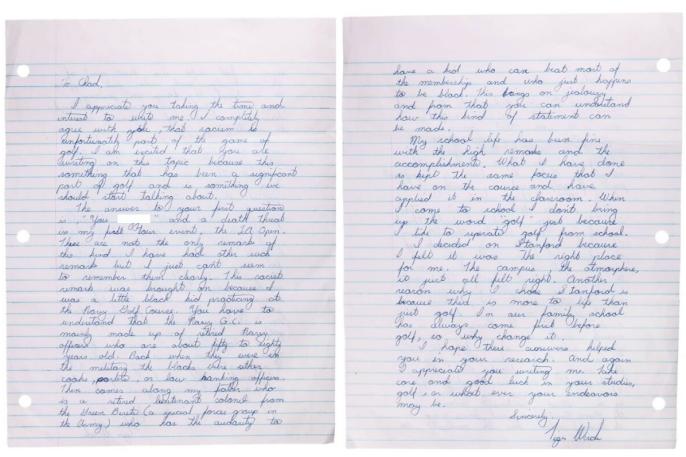 To Chad,
I appreciate you taking the time and
interest to write me. I completly
agree with you, that racism is
unfortunatly part of the game of
golf. I am excited that you are
writing on this topic because this
something that has been a significant
part of golf and is something we
should start talking about.
The answer to your first question
is: "You " and a death threat
in my Tour event, the LA Open.
These are not the only remarks of
this kind I have had other such
remarks but I just can't seem
to remember them clearly. This racist
remark was brought on because I
was a little black kid practicing at
the Navy Golf Course. You have to
understand that the Navy G.C. is
mainly made up of retired Navy
officers who are about fifty to eighty
years old. Back when they were in
the military the blacks were either
cooks, or low ranking officers.
Then comes along my father who
is a retired lieutenant colonel from
the Green Berets (a special forces group in
the Army) who has the audacity to
have a kid who can beat most of
the membership and who just happens
to be black. This brings on jealousy
and from that you can understand
how this kind of statement can
be made.
My school life has been fine
with the high remarks and the
accomplishments. What I have done
is kept the same focus that I
have on the course and have
applied it in the classroom. When
I come to school I don't bring
up the word "golf" just because
I like to seperate golf from school.
I decided on Stanford because
I felt it was the right place
for me. The campus, the atmosphere,
it just all felt right. Another
reason why I chose Stanford is
because there is more to life than
just golf. In our family school
has always come first before
golf, so why change it.
I hope these answers helped
you in your research. And again
I appreciate you writing me. Take
care and good luck in your studies,
golf or what ever your endeavors
may be.
Sincerely,
Tiger Woods